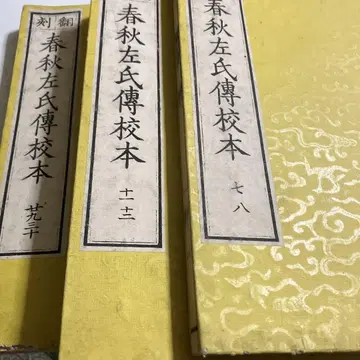 春秋左氏傳校本
七八
春秋左氏傳校本
十一十二
翻刻
春秋左氏傳校本
廿九三十